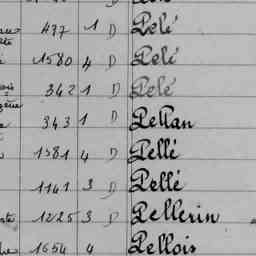 477 1 D Pelé
1580 4 D Pelé
3421 D Pelé
3431 D Pellan
1381 4 D Pellé
1141 3 D Pellé
1225 3 D Pellerin
1654 4 Pellois